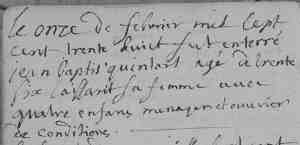 le onze de febvrier mil sept
cent trente huict fut enterré
jean baptis quintart agé de trente
six laissant sa femme avec
quatre enfans menager et ouvrier
de conditions